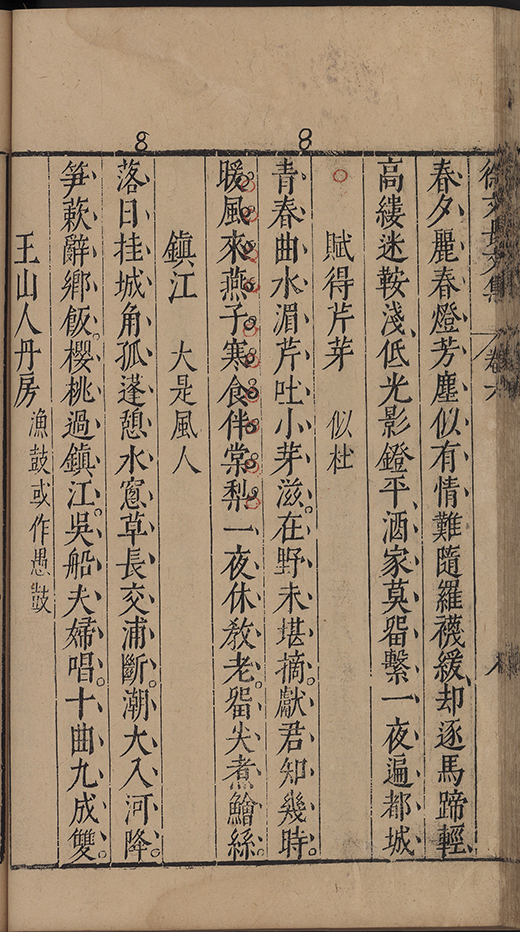 8
8
徐文長文集 卷六 八
春夕麗春燈芳塵似有情難隨羅襪緩却逐馬蹄輕
高縷迷鞍淺低光影鐙平酒家莫畱繫一夜遍都城
○ 賦得芹芽 似杜
青春曲水湄芹吐小芽滋。在野未堪摘。獻君知幾時。
暖風來燕子寒食伴棠梨一夜休教老。畱尖煮鱠絲。
鎮江 大是風人
落日挂城角孤蓬憩水窻草長交浦斷。潮大入河降。
笋蔌辭鄉飯。櫻桃過鎮江。吳船夫婦唱。十曲九成雙。
王山人丹房 漁鼓或作愚鼓